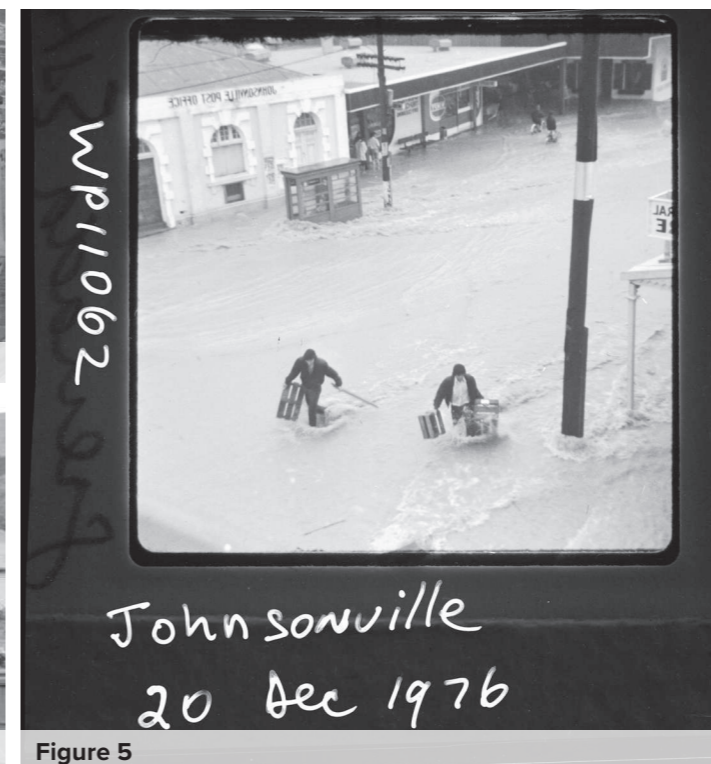 WP11062
JOHNSONVILLE POST OFFICE
Johnsonville
20 Dec 1976
Figure 5